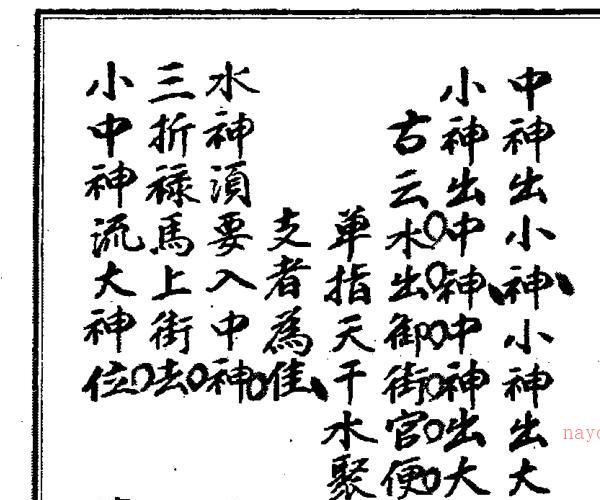 中神出小神小神出大
小神出中神中神出大
古云水出御街官便
單指天干水聚
支者為佳
水神須要入中神
三折祿馬上街去
小中神流大神位
nayo